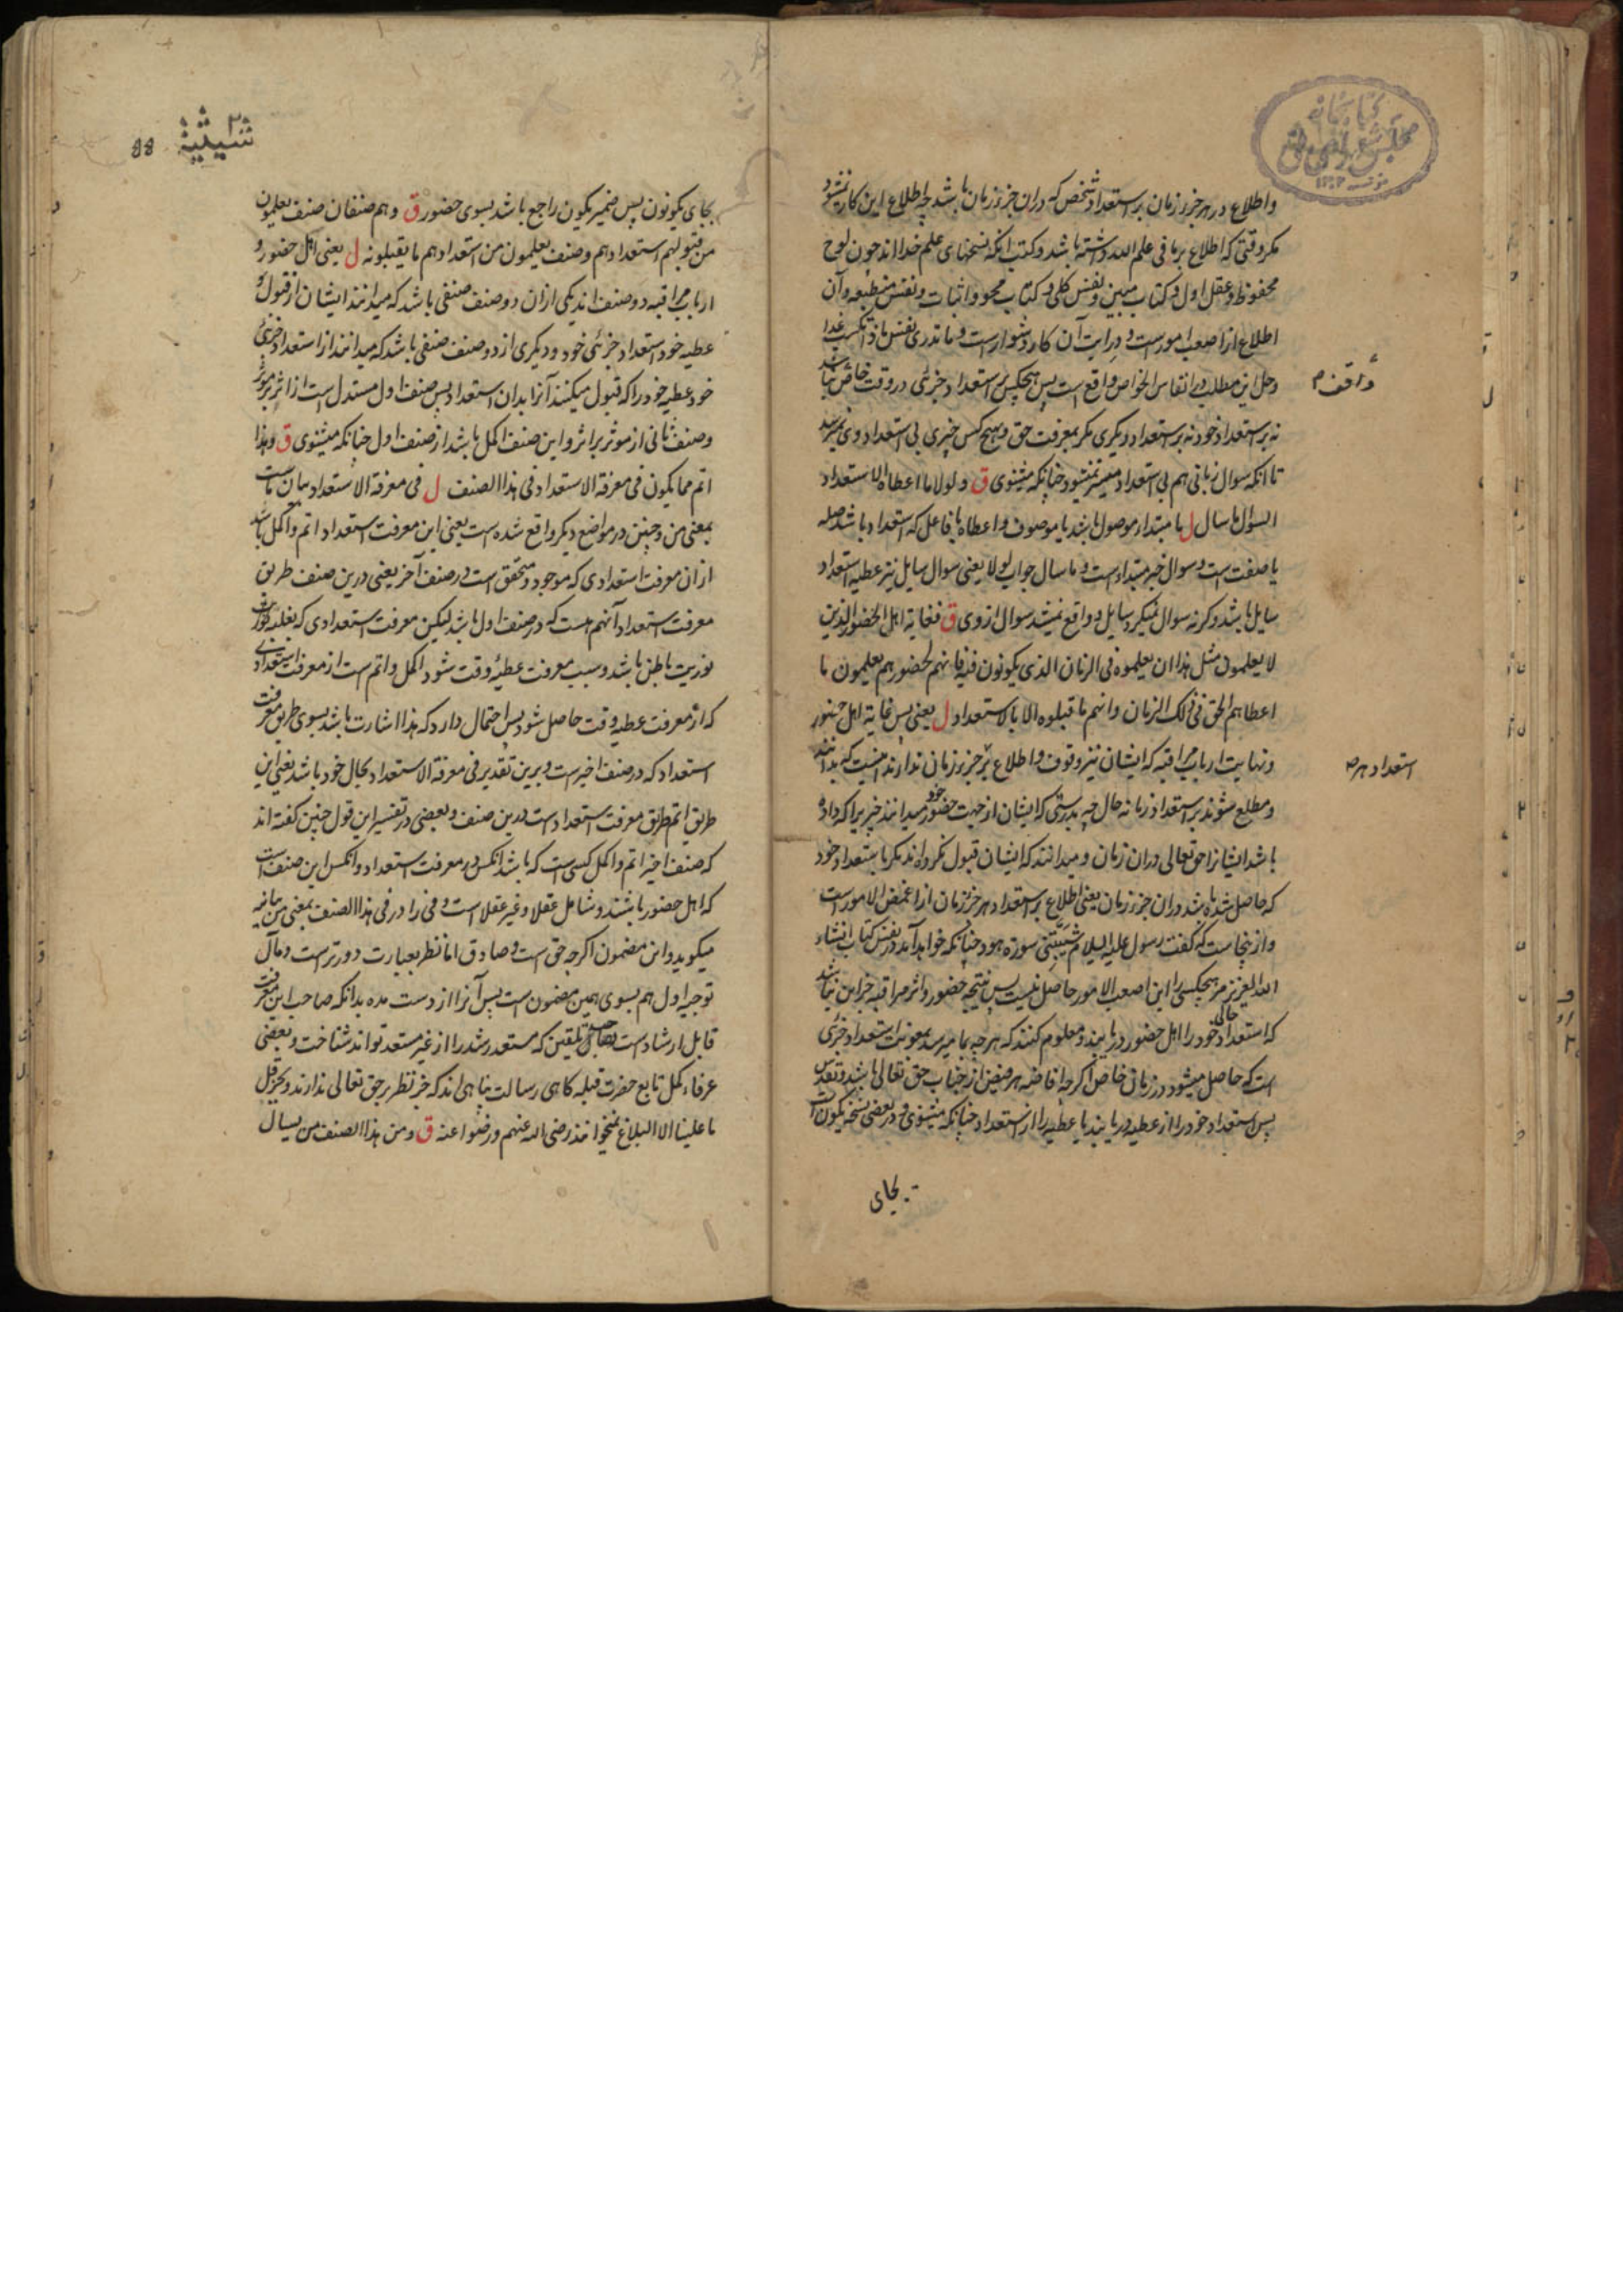 واطلاع در هر جزء زمان بر استعداد شخص که دران جزء زمان باشد چه اطلاع این کار نشود
مکر وقتی که اطلاع بر ما فی علم الله داشته باشد وکتب انکه نسخهای علم خدا اند چون لوح
محفوظ وعقل اول وکتاب مبین ونفس کلی وکتاب محو واثبات ونفس منطبعه وآن
اطلاع از اصعب امور ست ودرایت آن کار دشوار ست وما تدری نفس ماذا تکسب غدا
وحل این مطلب در انفاس الخواص واقع است پس هیچکس بر استعداد جزئی در وقت خاص نباشد
واقف م
نه بر استعداد خود نه بر استعداد دیکری مکر بمعرفت حق وهیچ کس چیزی بی استعداد وی نمیرسد
تا انکه سوال زبانی هم بی استعداد میسر نمیشود چنانکه میشنوی ق ولولا ما اعطاه الاستعداد
السؤال ما سال ل ما مبتداء موصول باشد یا موصوف واعطاه با فاعل که استعداد باشد صله
یا صفت است وسوال خبر مبتداء است وما سال جواب لولا یعنی سوال سایل نیز عطیه استعداد
سایل باشد وکرنه سوال نمیکرد سایل وواقع نمیشد سوال از وی ق فغایة اهل الحضور الذین
لا یعلمون مثل هذا ان یعلموه فی الزمان الذی یکونون فیه فانهم لحضورهم یعلمون ما
اعطاهم الحق فی ذلک الزمان وانهم ما قبلوه الا بالاستعداد ل یعنی پس غایة اهل حضور
ونهایت ارباب مراقبه که ایشان نیز وقوف واطلاع بر هر جزء زمان ندارند اینست که بدانند
استعداد هر صه
ومطلع شوند بر استعداد زمانه حال چه بدرستی که ایشان از جهت حضور خود میدانند چیزیرا که داده
باشد ایشانرا حق تعالی دران زمان ومیدانند که ایشان قبول نکرده اند مکر باستعداد خود
که حاصل شده باشد دران جزء زمان یعنی اطلاع بر استعداد هر جزء زمان از اغمض الامور است
وازینجاست که کفت رسول علیه السلام شیبتنی سورة هود چنانکه خواهد آمد در نفس کتاب انشاء
الله العزیز مر هیچکسی را این اصعب الامور حاصل نیست پس نتیجه حضور واثر مراقبه جز این نباشد
که استعداد حالی خود را اهل حضور دریابند ومعلوم کنند که هر چه بما میرسد بمعونت استعداد جزئی
است که حاصل میشود در زمان خاص اکرچه افاضه هر فیض از جناب حق تعالی باشد وتقدس
پس استعداد خود را از عطیه دریابند یا عطیه را از استعداد چنانکه میشنوی ودر بعضی نسخ یکون است
بجای
شیثیة
بجای یکونون پس ضمیر یکون راجع باشد بسوی حضور ق وهم صنفان صنف یعلمون
من قبولهم استعدادهم وصنف یعلمون من استعدادهم ما یقبلونه ل یعنی اهل حضور و
ارباب مراقبه دو صنف اند یکی ازان دو صنف صنفی باشد که میدانند ایشان از قبول
عطیه خود استعداد جزئی خود ودیکری از دو صنف صنفی باشد که میدانند از استعداد جزئی
خود عطیه خود را که قبول میکنند آنرا بدان استعداد پس صنف اول مستدل است از اثر بر موثر
وصنف ثانی از موثر بر اثر واین صنف اکمل باشد از صنف اول چنانکه میشنوی ق وهذا
اتم مما یکون فی معرفة الاستعداد فی هذا الصنف ل فی معرفة الاستعداد بیان ماست
بمعنی من وچنین در مواضع دیکر واقع شده است یعنی این معرفت استعداد اتم واکمل باشد
ازان معرفت استعدادی که موجود ومتحقق است در صنف آخر یعنی درین صنف طریق
معرفت استعداد آنهم هست که در صنف اول باشد لیکن معرفت استعدادی که بغلبه نور
نوریت باطن باشد وسبب معرفت عطیه وقت شود اکمل واتم ست از معرفت استعدادی
که از معرفت عطیه وقت حاصل شود پس احتمال دارد که هذا اشارت باشد بسوی طریق معرفت
استعداد که در صنف اخیر ست وبرین تقدیر فی معرفة الاستعداد بحال خود باشد یعنی این
طریق اتم طریق معرفت استعداد است درین صنف وبعضی در تفسیر این قول چنین کفته اند
که صنف اخیر اتم واکمل کسی است که باشد انکس در معرفت استعداد وانکس این صنف است
که اهل حضور باشند وشامل عقلا وغیر عقلا است وفی را در فی هذا الصنف بمعنی من بیانیه
میکوید واین مضمون اکرچه حق است وصادق اما نظر بعبارت دورتر ست ومآل
توجیه اول هم بسوی همین مضمون است پس آنرا از دست مده بدانکه صاحب این معرفت
قابل ارشاد است تلقین که مستعد رشد را از غیر مستعد تواند شناخت وبعضی
عرفاء کمل تابع حضرت قبله کاهی رسالت پناهی اند که جز نظر بر حق تعالی ندارند وبجز قل
ما علینا الا البلاغ نمیخوانند رضی الله عنهم ورضوا عنه ق ومن هذا الصنف من یسال